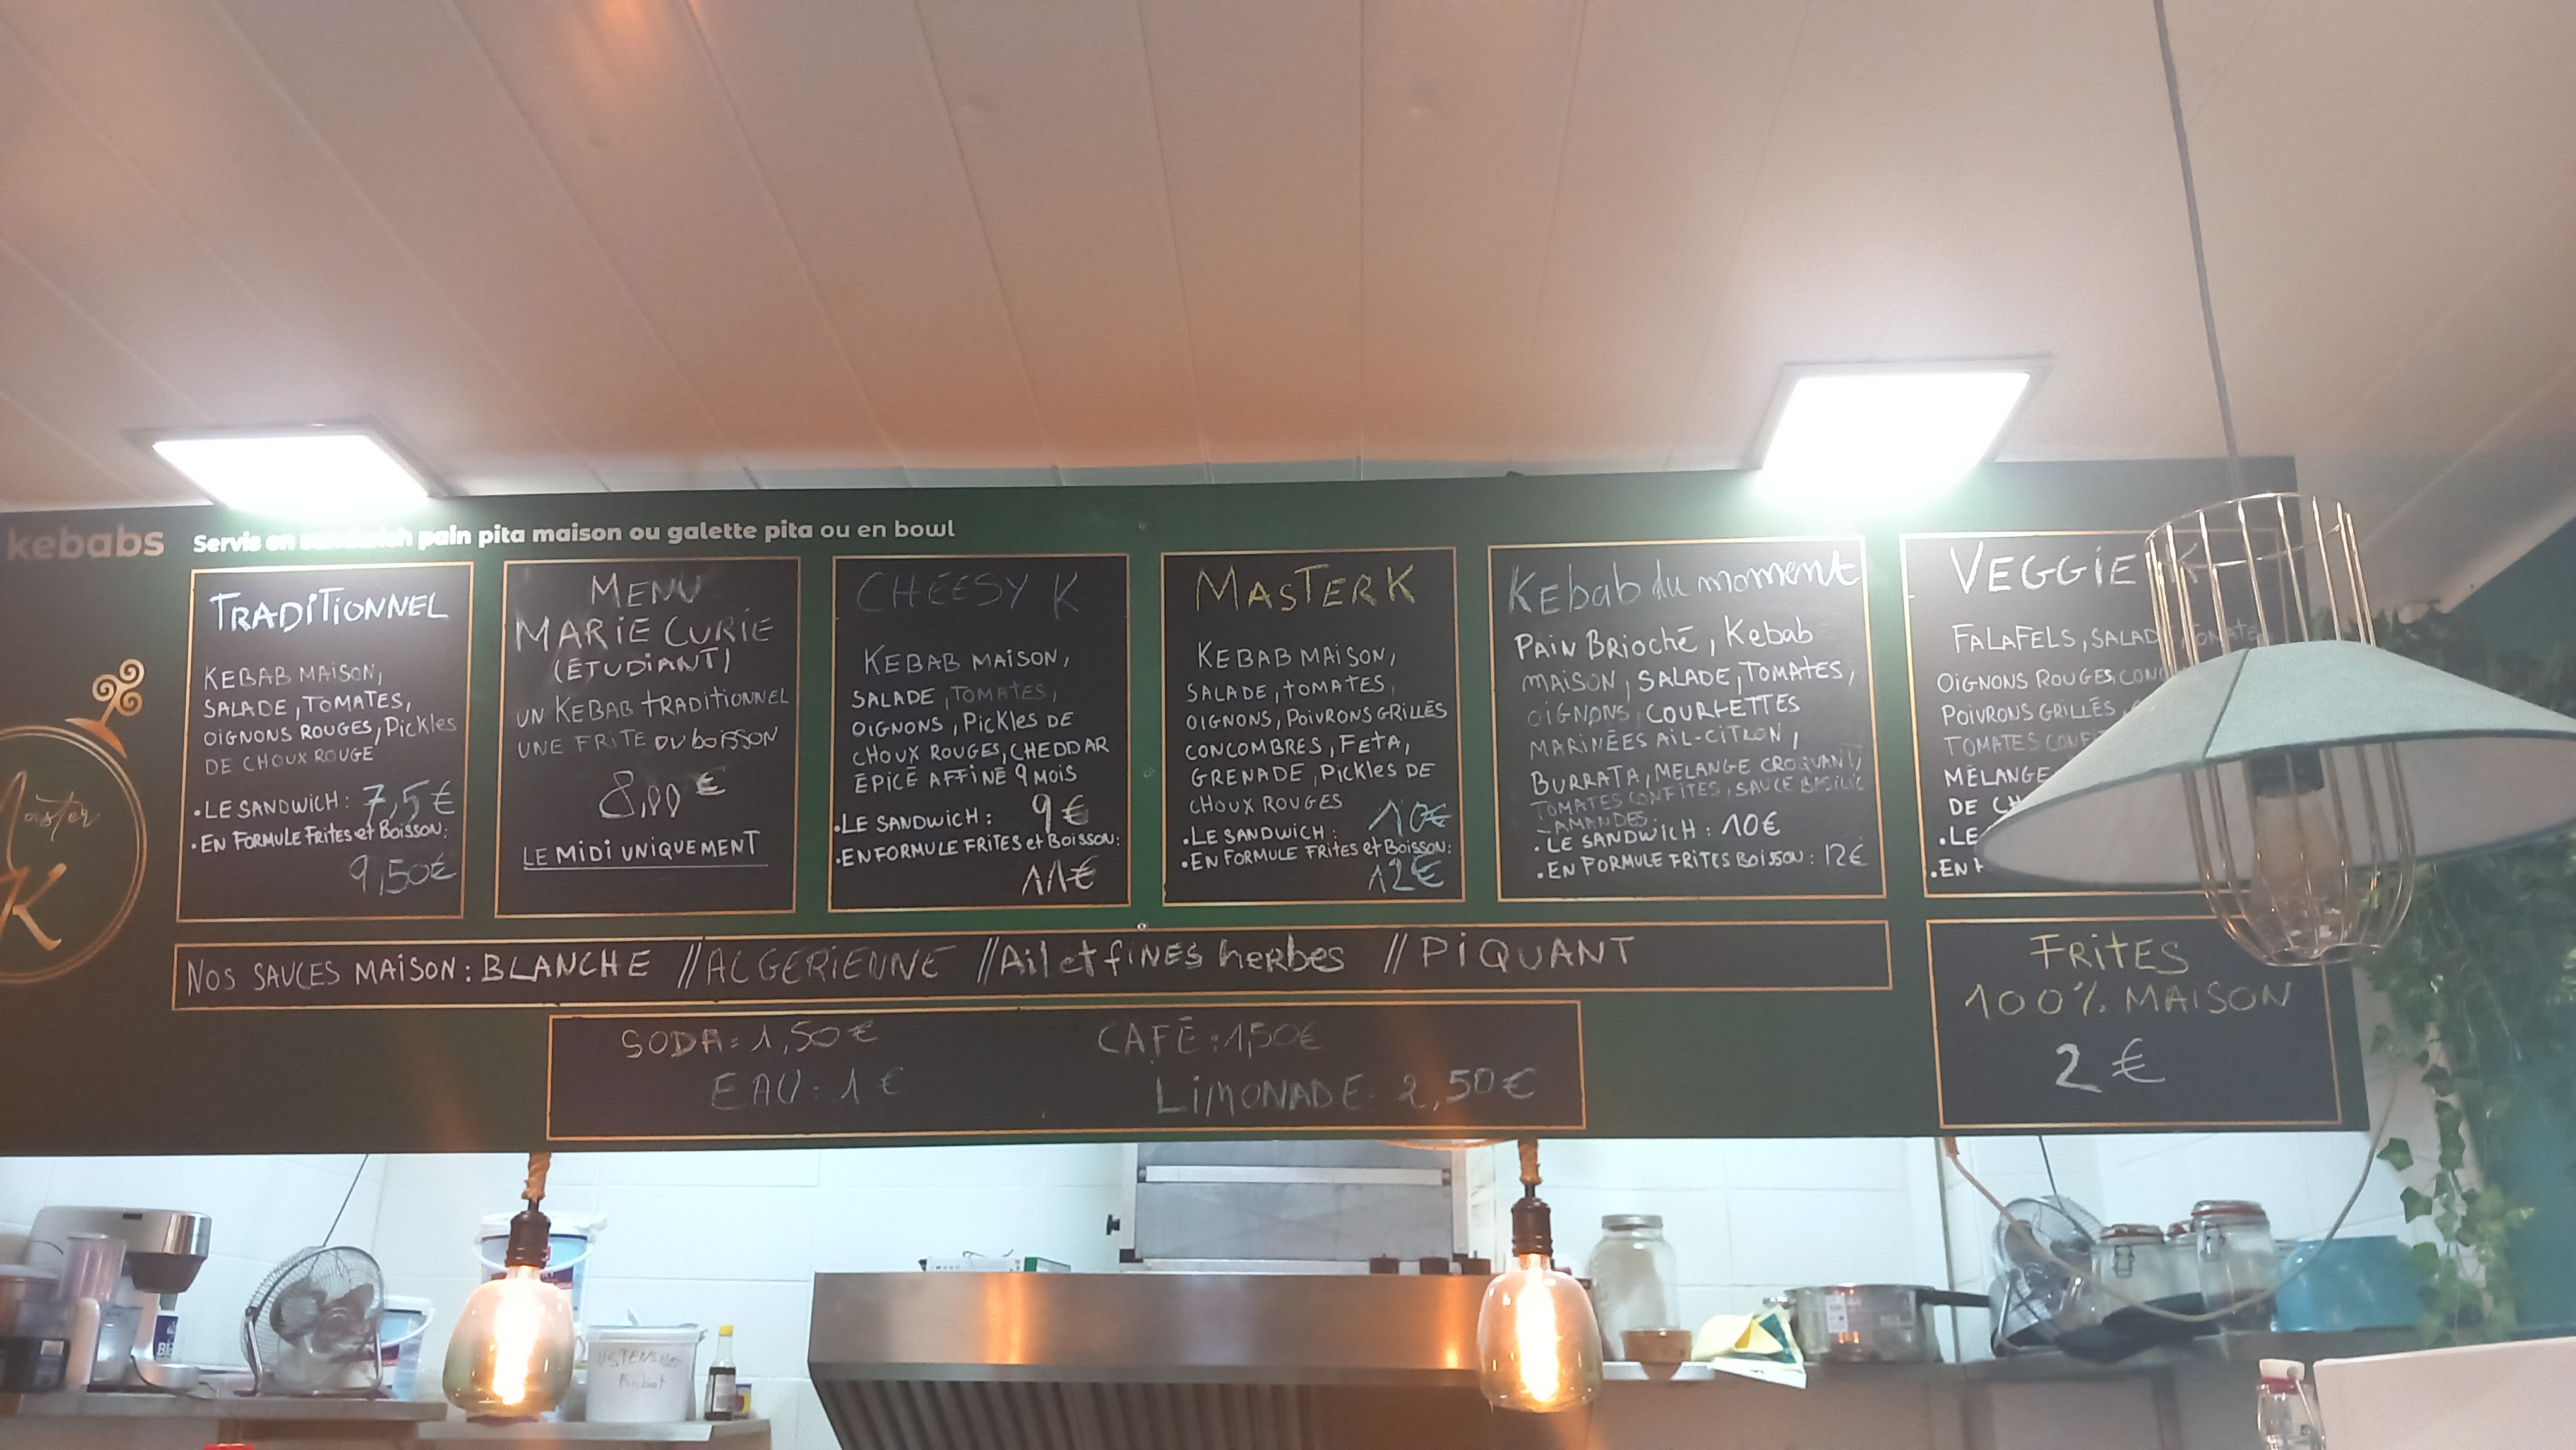 kebabs
Servis en sandwich pain pita maison ou galette pita ou en bowl
TRADITIONNEL
KEBAB MAISON,
SALADE, TOMATES,
OIGNONS ROUGES, Pickles
DE CHOUX ROUGE
• LE SANDWICH: 7,5€
• EN FORMULE FRITES et BOISSON:
9,50€
MENU
MARIE CURIE
(ETUDIANT)
UN KEBAB TRADITIONNEL
UNE FRITE OU BOISSON
8,00 €
LE MIDI UNIQUEMENT
CHEESY K
KEBAB MAISON,
SALADE, TOMATES,
OIGNONS, PICKLES DE
CHOUX ROUGES, CHEDDAR
EPICÉ AFFINÉ 9 MOIS
• LE SANDWICH: 9€
• EN FORMULE FRITES et BOISSON:
11€
MASTER K
KEBAB MAISON,
SALADE, TOMATES,
OIGNONS, POIVRONS GRILLÉS
CONCOMBRES, FETA,
GRENADE, PICKLES DE
CHOUX ROUGES
• LE SANDWICH: 10€
• EN FORMULE FRITES et BOISSON:
12€
Kebab du moment
PAIN BRIOCHÉ, Kebab
MAISON, SALADE, TOMATES,
OIGNONS, COURGETTES
MARINÉES AIL-CITRON,
BURRATA, MELANGE CROQUANT,
TOMATES CONFITES, SAUCE BASILIC
-AMANDES.
• LE SANDWICH: 10€
• EN FORMULE FRITES BOISSON: 12€
VEGGIE K
FALAFELS, SALADE, TOMATE
OIGNONS ROUGES, CONC
POIVRONS GRILLÉS,
TOMATES CONF
MÉLANGE
DE CH
• LE
• EN F
Master
K
NOS SAUCES MAISON: BLANCHE // ALGERIENNE // Ail et fines herbes // PIQUANT
SODA: 1,50€ CAFÉ: 1,50€
EAU: 1€ LIMONADE: 2,50€
FRITES
100% MAISON
2€
USTENSILES
Robot